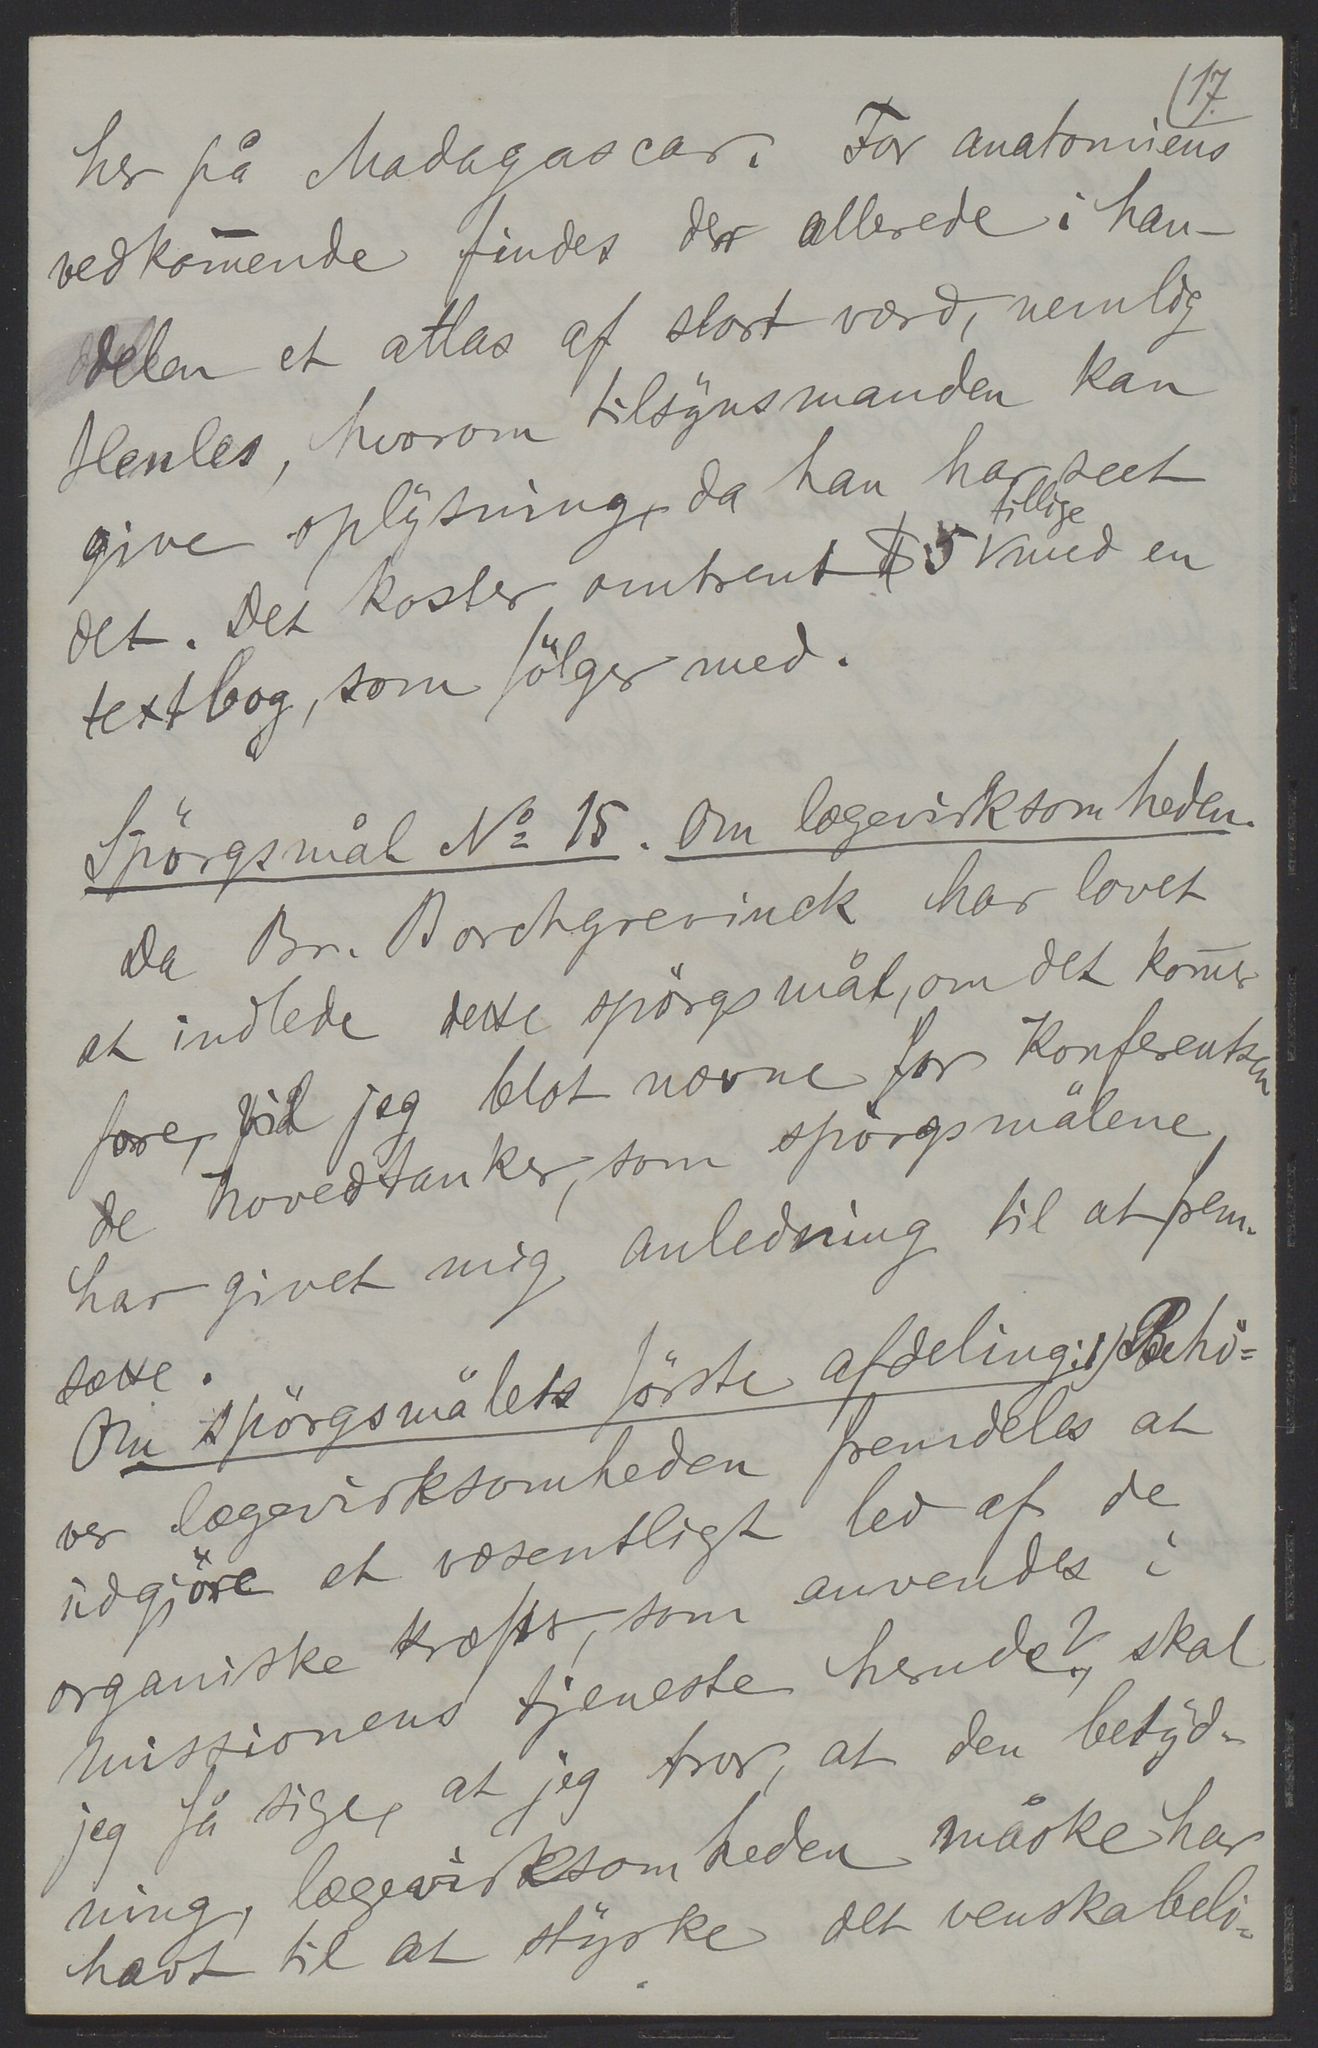 (17.
her på Madagascar. For anatomiens
vedkom̅ende findes der allerede i han-
delen et atlas af stort værd, nemlig
Henles, hvorom tilsÿnsmanden kan
give oplÿsning, da han har seet
det. Det koster omtrent $5 tillige med en
textbog, som fölger med.
Spörgsmål No 15. Om lægevirksomheden.
Da Br. Borchgrevinck har lovet
at indlede dette spörgsmål, om det kom̅er
fore, vil jeg blot nævne for Konferentsen
de hovedtanker, som spörgsmålene
har givet mig anledning til at frem-
sætte.
Om spörgsmålets förste afdeling: 1) Behö=
ver lægevirksomheden fremdeles at
udgjöre et væsentligt led af de
organiske kræfter, som anvendes i
missionens tjeneste herude?, skal
jeg få sige, at jeg tror, at den betÿd-
ning, lægevirksomheden måske har
havt til at stÿrke det venskabeli=